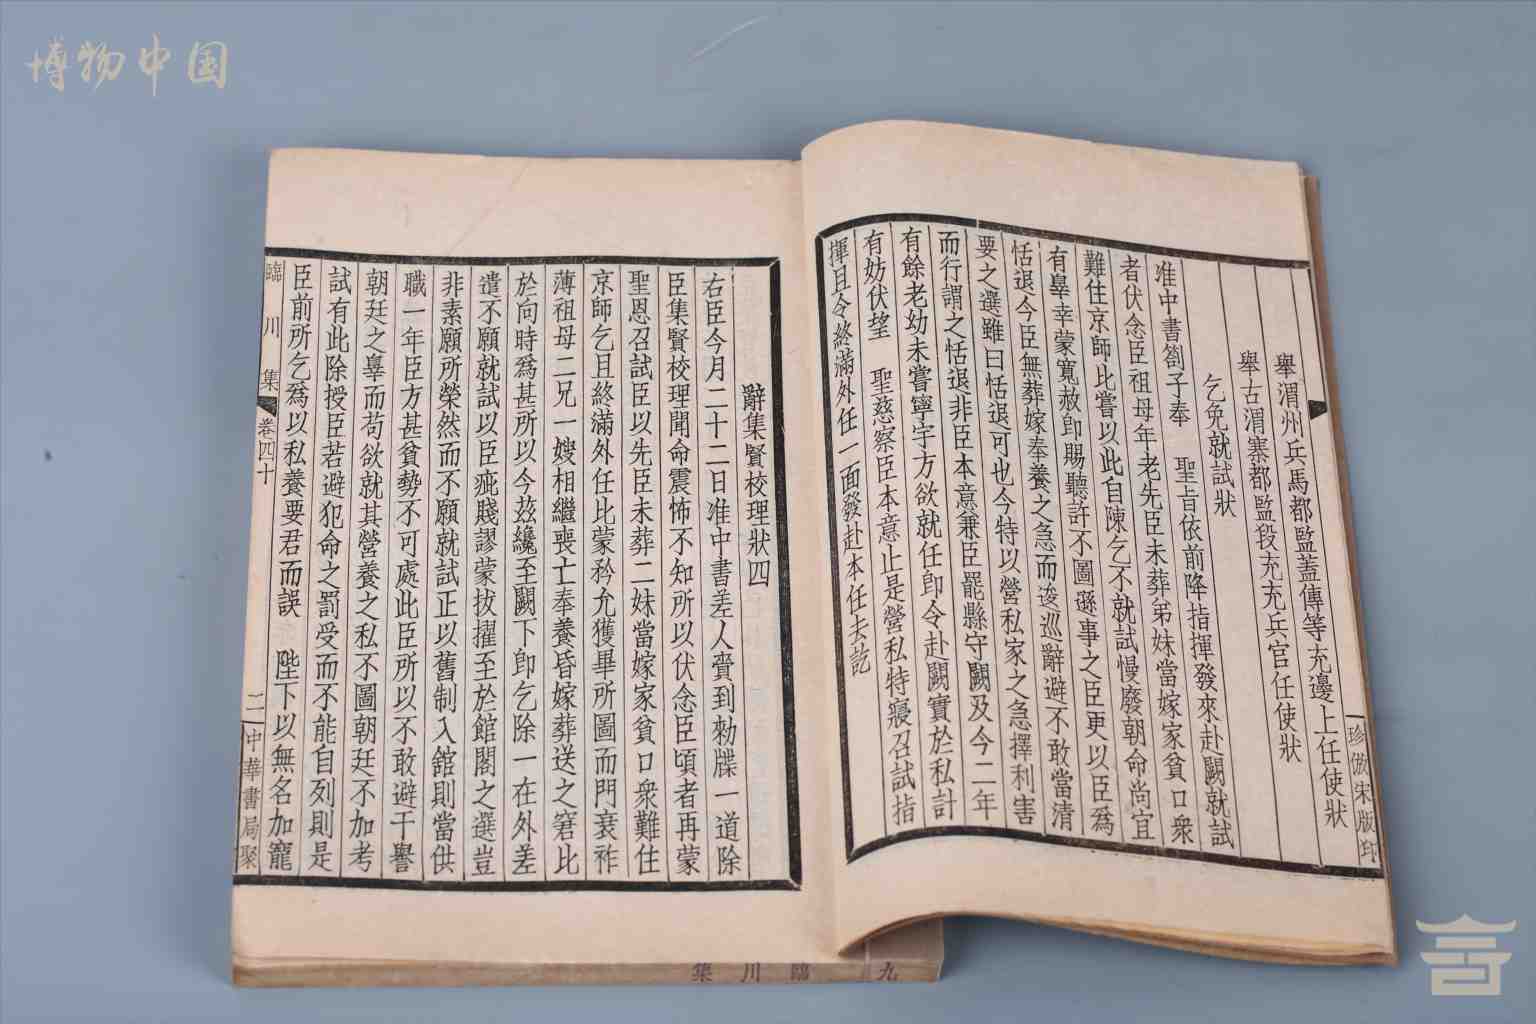 博物中国
舉渭州兵馬都監蓋傳等充邊上任使狀
舉古渭寨都監段充充兵官任使狀
乞免就試狀
准中書劄子奉 聖旨依前降指揮發來赴闕就試
者伏念臣祖母年老先臣未葬弟妹當嫁家貧口衆
難住京師比嘗以此自陳乞不就試慢廢朝命尚宜
有辠幸蒙寬赦即賜聽許不圖遜事之臣更以臣爲
恬退今臣無葬嫁奉養之急而逡巡辭避不敢當清
要之選雖曰恬退可也今特以營私家之急擇利害
而行謂之恬退非臣本意兼臣罷縣守闕及今二年
有餘老幼未嘗寧宇方欲就任即令赴闕實於私計
有妨伏望 聖慈察臣本意止是營私特寢召試指
揮且令終滿外任一面發赴本任去訖
珍倣宋版印
辭集賢校理狀四
右臣今月二十二日准中書差人賷到勑牒一道除
臣集賢校理聞命震怖不知所以伏念臣頃者再蒙
聖恩召試臣以先臣未葬二妹當嫁家貧口衆難住
京師乞且終滿外任比蒙矜允獲畢所圖而門衰祚
薄祖母二兄一嫂相繼喪亡奉養昏嫁葬送之窘比
於向時爲甚所以今茲纔至闕下即乞除一在外差
遣不願就試以臣疵賤謬蒙拔擢至於館閣之選豈
非素願所榮然而不願就試正以舊制入館則當供
職一年臣方甚貧勢不可處此臣所以不敢避干譽
朝廷之辠而苟欲就其營養之私不圖朝廷不加考
試有此除授臣若避犯命之罰受而不能自列則是
臣前所乞爲以私養要君而誤 陛下以無名加寵
臨川集 卷四十 二 中華書局聚
九 臨川集